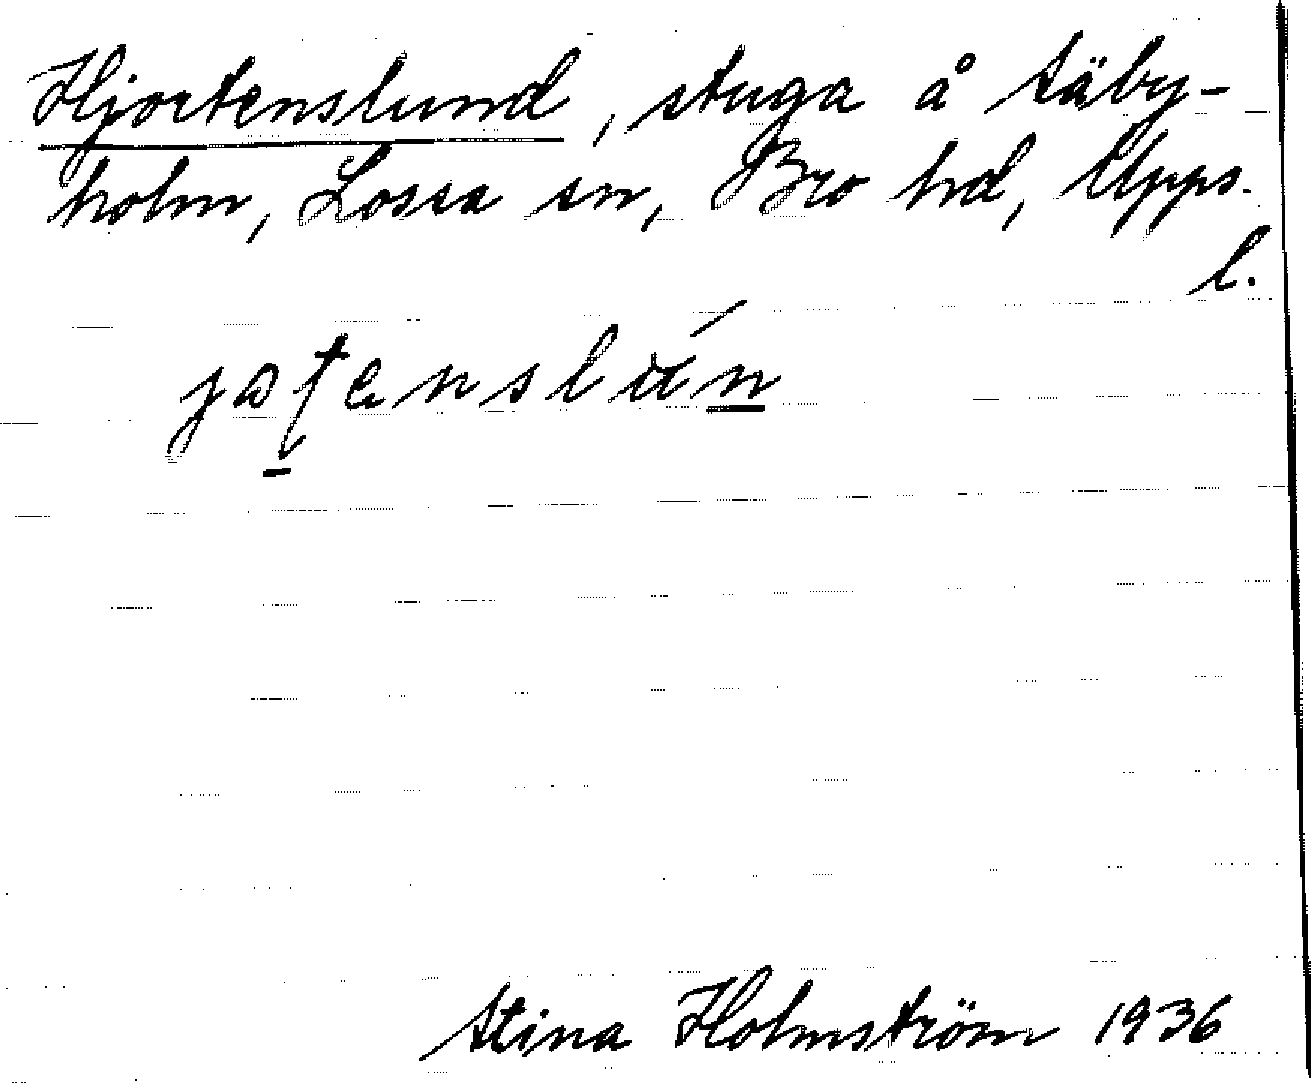 Hjortenslund, stuga å Täby-
holm, Lossa sn, Bro hd, Upps.
l.
Stina Holmström 1936